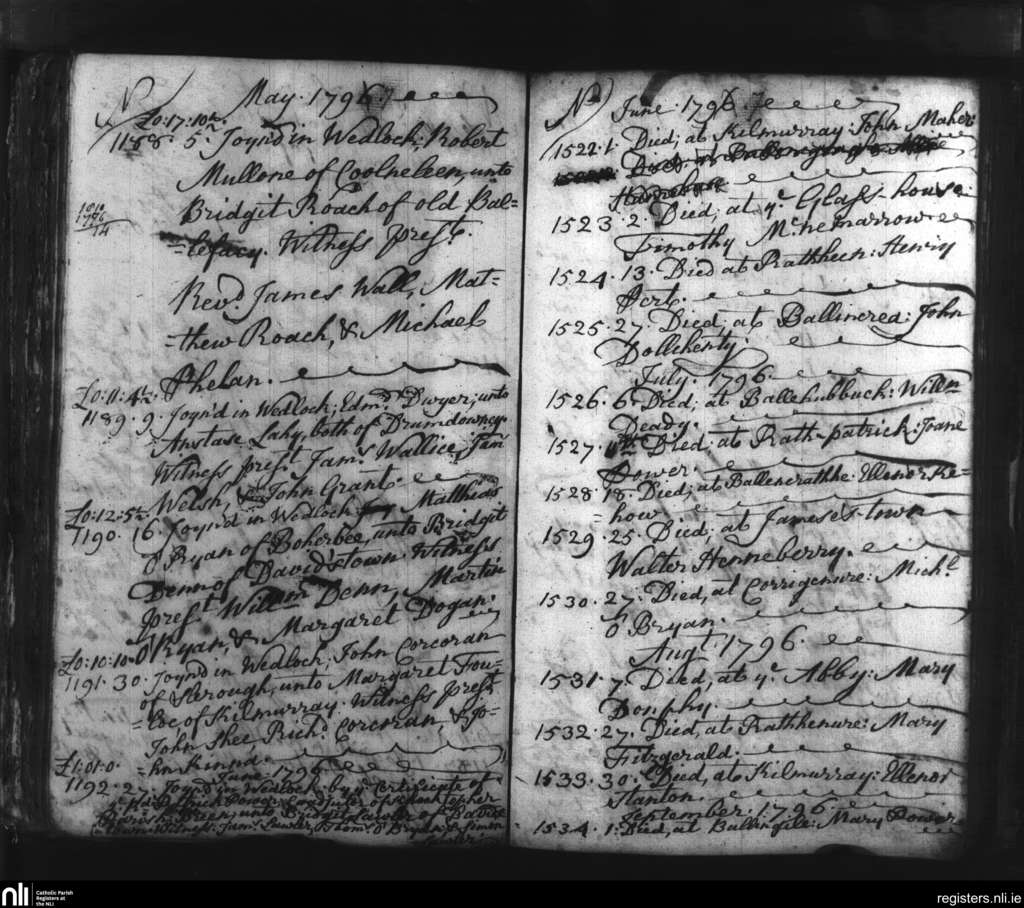 No May. 1796.
£0:17:10½
1188. 5th Joyn'd in Wedlock; Robert
Mullone of Coolneleen, unto
Bridgit Roach of old Bal=
=lefacy. Witness prest.
Revd. James Wall, Mat=
=thew Roach, & Michael
Phelan.
£0:11:4½
1189. 9. Joyn'd in Wedlock; Edmd. Dwyer, unto
Anstase Lahy, both of Drumdowney
Witness prest. Jams. Wallice, Jams
Welsh, & John Grant.
£0:12:5½
1190. 16. Joyn'd in Wedlock Matthias
O Bryan of Boherbee, unto Bridgit
Denn of David'stown Witness
prest. Willm Denn, Martin
O Ryan, & Margaret Dogan.
£0:10:10
1191. 30. Joyn'd in Wedlock; John Corcoran
of Skrough, unto Margaret Fou=
=loe of Kilmurray. Witness prest.
John Shee, Richd. Corcoran, & Jo=
=hn Kinnd.
June. 1796
£1:01:0.
1192. 27. Joyn'd in Wedlock by ye Certificate of
Patrick Power Coadjutor of
Parish: Breen, unto Bridgit Lawler of
=town: Witness: Jams. Lawler, Thoms. O Bryan, & Simon
Lawler
No June. 1796
1522. 1. Died; at Kilmurray: John Maher
1523. 2. Died; at ye Glass house:
Timothy McNemarrow
1524. 13. Died at Rathkeen: Henry
Pert.
1525. 27. Died; at Ballincrea: John
Dollehenty.
July. 1796
1526. 6. Died; at Ballehubbuck: Willm
Deady.
1527. Died at Rath-patrick: Joane
Power.
1528. 18. Died; at Ballencrathe: Ellenor Ke=
=how
1529. 25. Died; at Jameses town
Walter Henneberry.
1530. 27. Died, at Corrigenure: Michl.
O Bryan.
Augt. 1796.
1531. 7. Died, at ye Abby: Mary
Donphy.
1532. 27. Died, at Rathkenure: Mary
Fitzgerald.
1533. 30. Died, at Kilmurray: Ellenor
Stanton.
September. 1796.
1534. 1. Died, at Ballinfile: Mary Power
nli Catholic Parish
Registers at
the NLI
registers.nli.ie